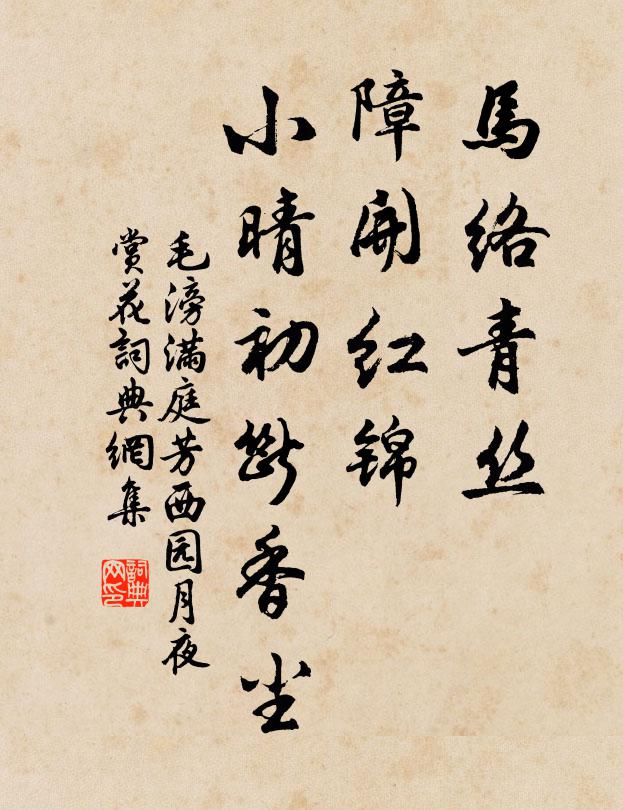 馬络青丝
障開红锦
小晴初断香尘
毛滂满庭芳西园月夜
赏花詞典網集
詞典网印